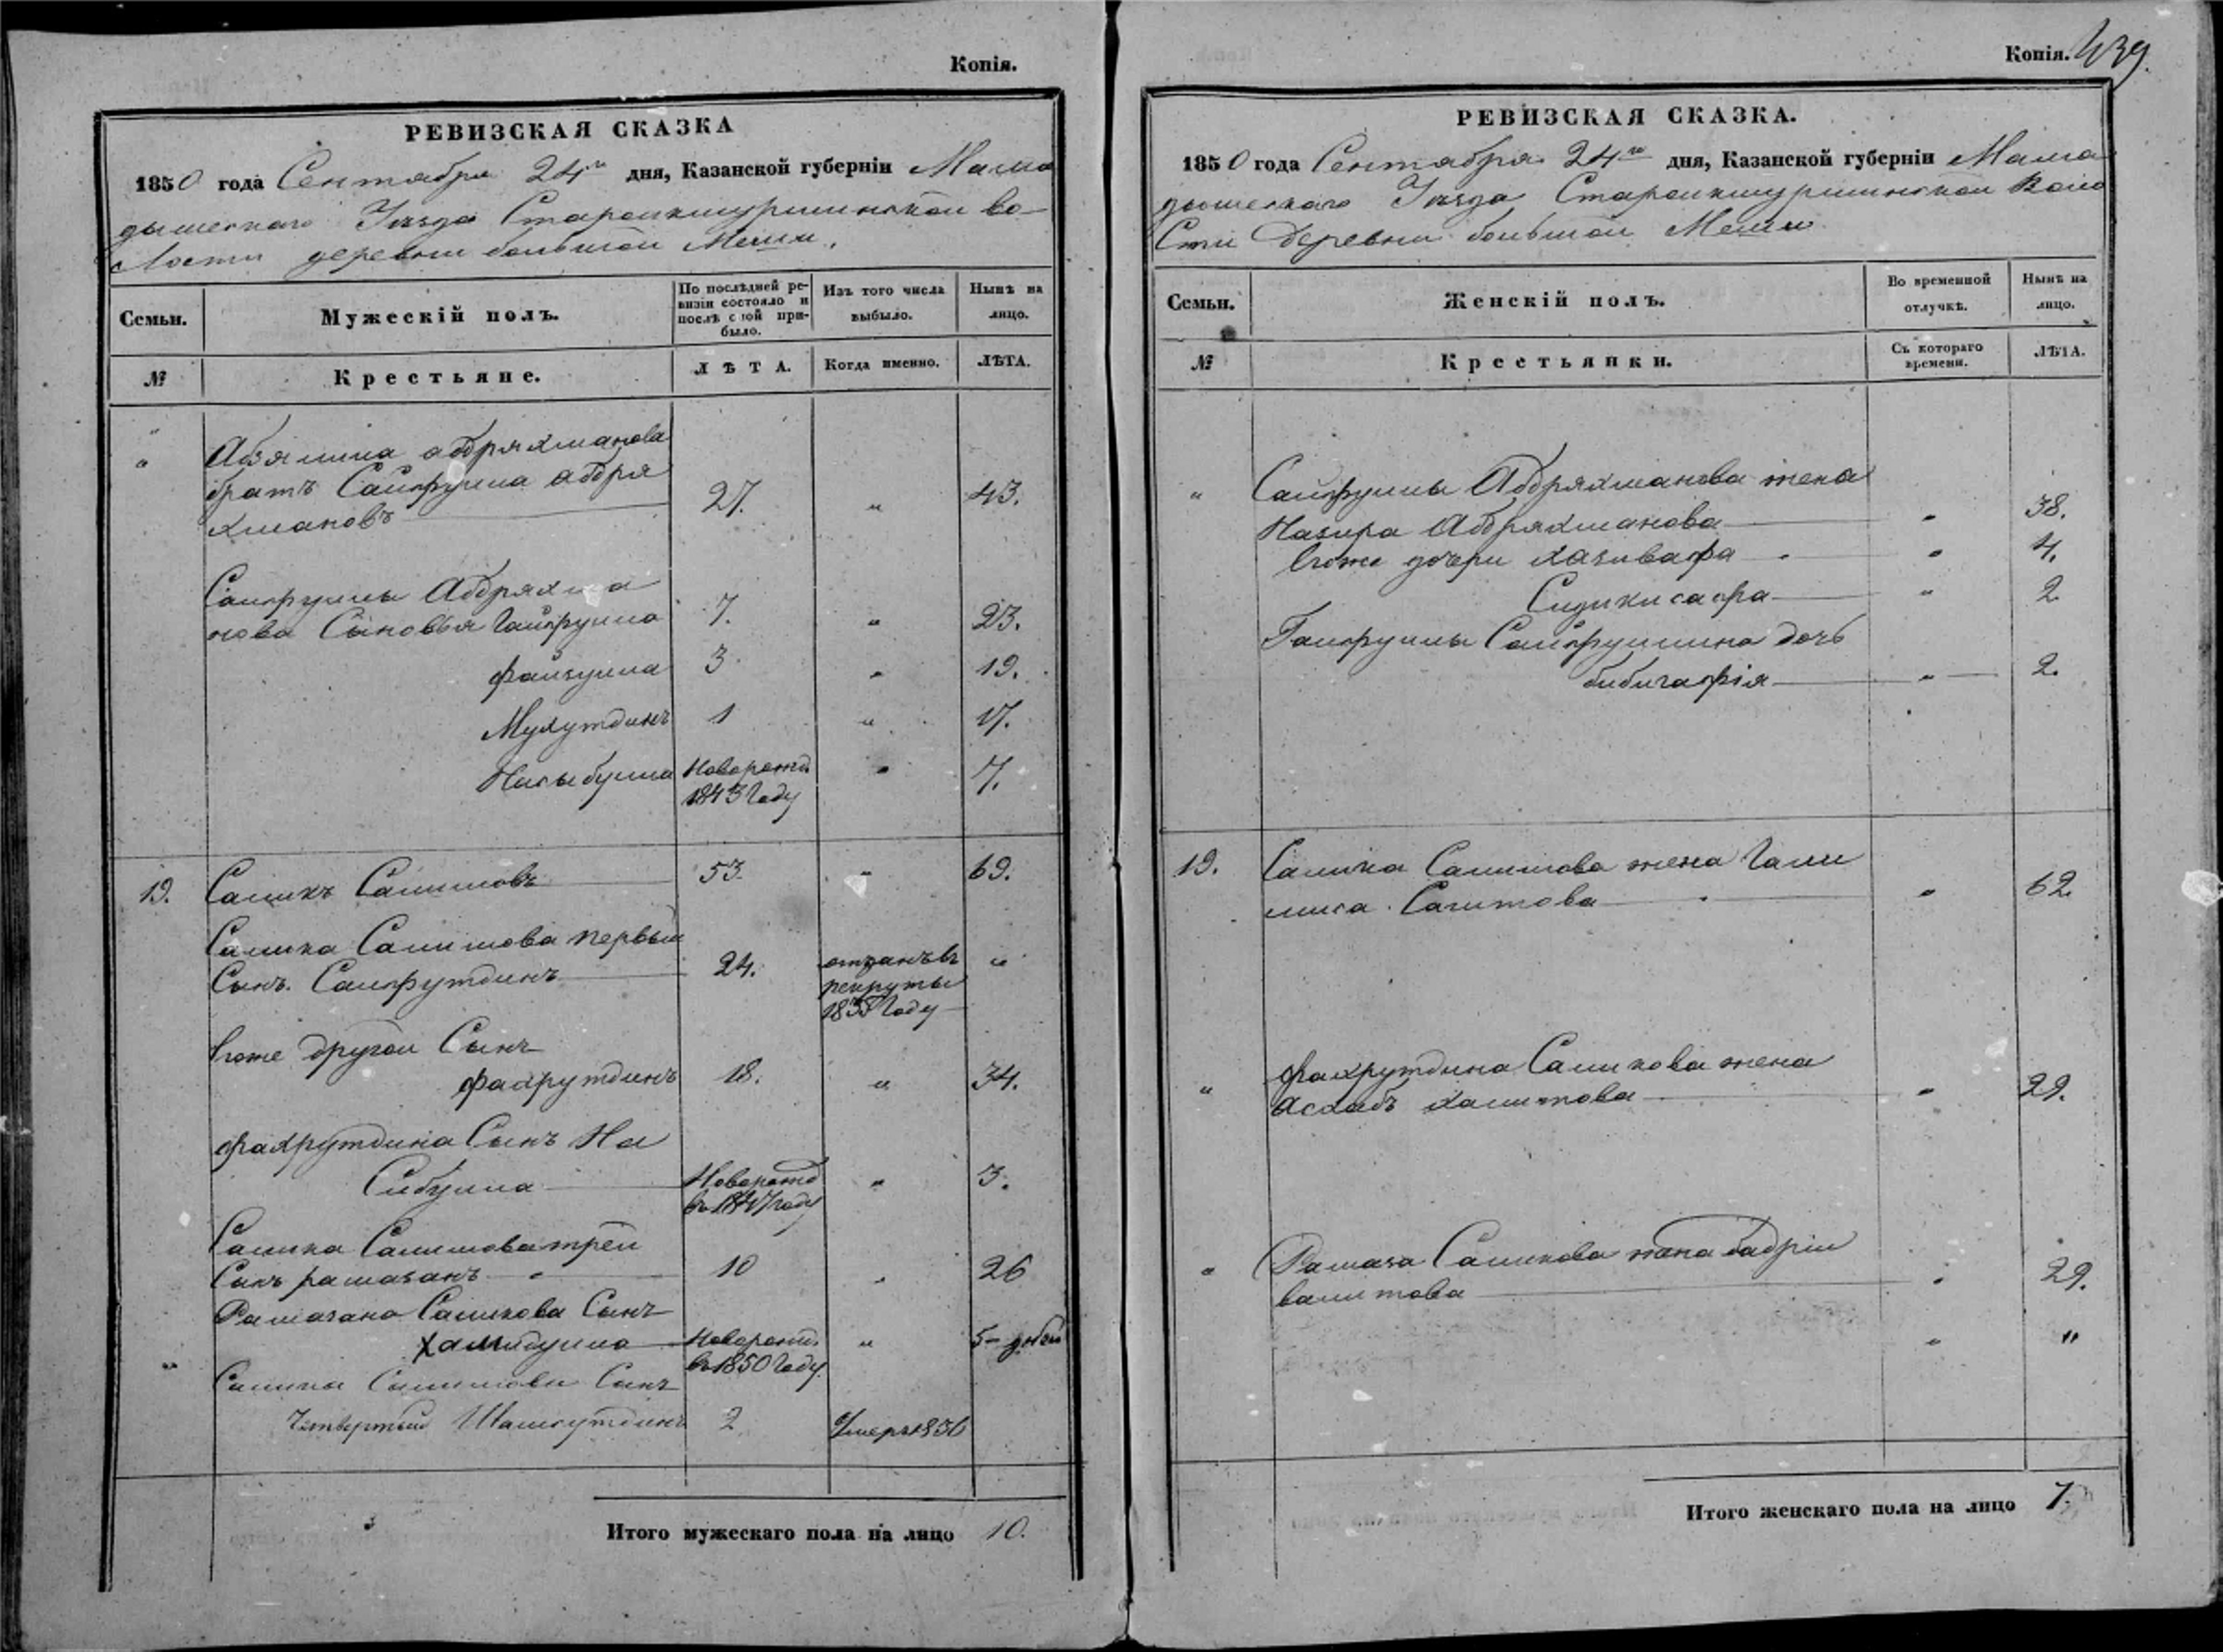 Копія.
РЕВИЗСКАЯ СКАЗКА
1850 года Сентября 24го дня, Казанской губерніи Мама
дышскаго Уѣзда Староикшурминской во-
лости деревни большой Меши.
Семьи.
Мужескій полъ.
По послѣдней ре-
визіи состояло и
послѣ с ой при-
было.
Изъ того числа
выбыло.
Нынѣ на
лицо.
№
Крестьяне.
ЛѢТА.
Когда именно.
ЛѢТА.
" Абрахманова
" братъ Сайфулла абдря
хмановъ 27. " 43.
Сайфуллы Абдряхма
нова Сыновья Гайфулла 7. " 23.
файзулла 3. " 19.
Мухутдинъ 1 " 17.
Насыбулла Новорожд. " 7.
1843 Году
19. Саликъ Салимовъ 53. " 69.
Салика Салимова первый
Сынъ. Сайфутдинъ 24. отданъ въ "
рекруты
1835 Году
Егоже другой Сынъ
фахрутдинъ 18. " 34.
фахрутдина Сынъ На
Сибулла Новорожд " 3.
въ 1847 году
Салика Салимова трей
Сынъ рамазанъ 10 " 26
Рамазана Саликова Сынъ
Хамибулла Новорожд. " 5-
въ 1850 Году
" Салика Салимова Сынъ
Четвертый Шамсутдинъ 2 Умеръ 1836
Итого мужескаго пола на лицо 10.
Копія. 439.
РЕВИЗСКАЯ СКАЗКА.
1850 года Сентября 24го дня, Казанской губерніи Мама
дышскаго Уѣзда Староикшурминской Воло
Сти Деревни большой Меши
Семьи.
Женскій полъ.
Во временной
отлучкѣ.
Нынѣ на
лицо.
№
Крестьянки.
Съ котораго
времени.
ЛѢТА.
" Сайфуллы Абдряхманова жена
Назира Абдряхманова " 38.
Егоже дочери хазивафа " 4.
Сидикисафа " 2
Гайфуллы Сайфуллина дочь
бибигафія " 2.
19. Салика Салимова жена Гали
лиса. Сагитова " 62
" фахрутдина Саликова жена
Асхабъ халитова " 29.
" Рамаза Саликова жена бадріи
валитова " 29.
" "
Итого женскаго пола на лицо 7.